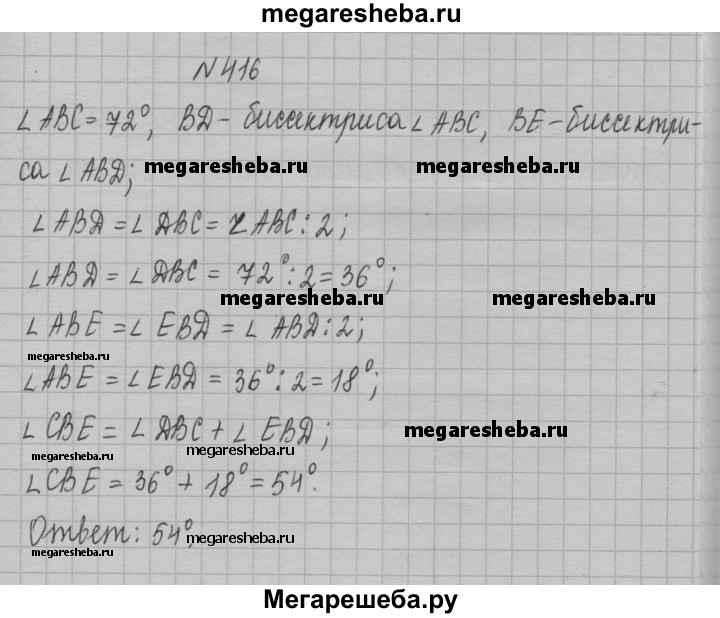 megaresheba.ru
N 416
∠ABC = 72°, BD - биссектриса ∠ABC, BE - биссектри-
са ∠ABD; megaresheba.ru megaresheba.ru
∠ABD = ∠DBC = ∠ABC : 2;
∠ABD = ∠DBC = 72° : 2 = 36°;
megaresheba.ru megaresheba.ru
∠ABE = ∠EBD = ∠ABD : 2;
megaresheba.ru
∠ABE = ∠EBD = 36° : 2 = 18°;
∠CBE = ∠DBC + ∠EBD; megaresheba.ru
megaresheba.ru megaresheba.ru
∠CBE = 36° + 18° = 54°.
Ответ: 54°. megaresheba.ru
megaresheba.ru
Мегарешеба.ру